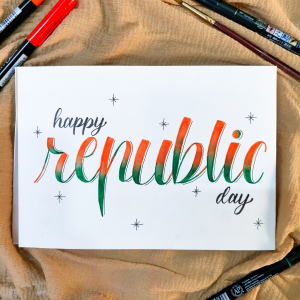 happy
republic
day